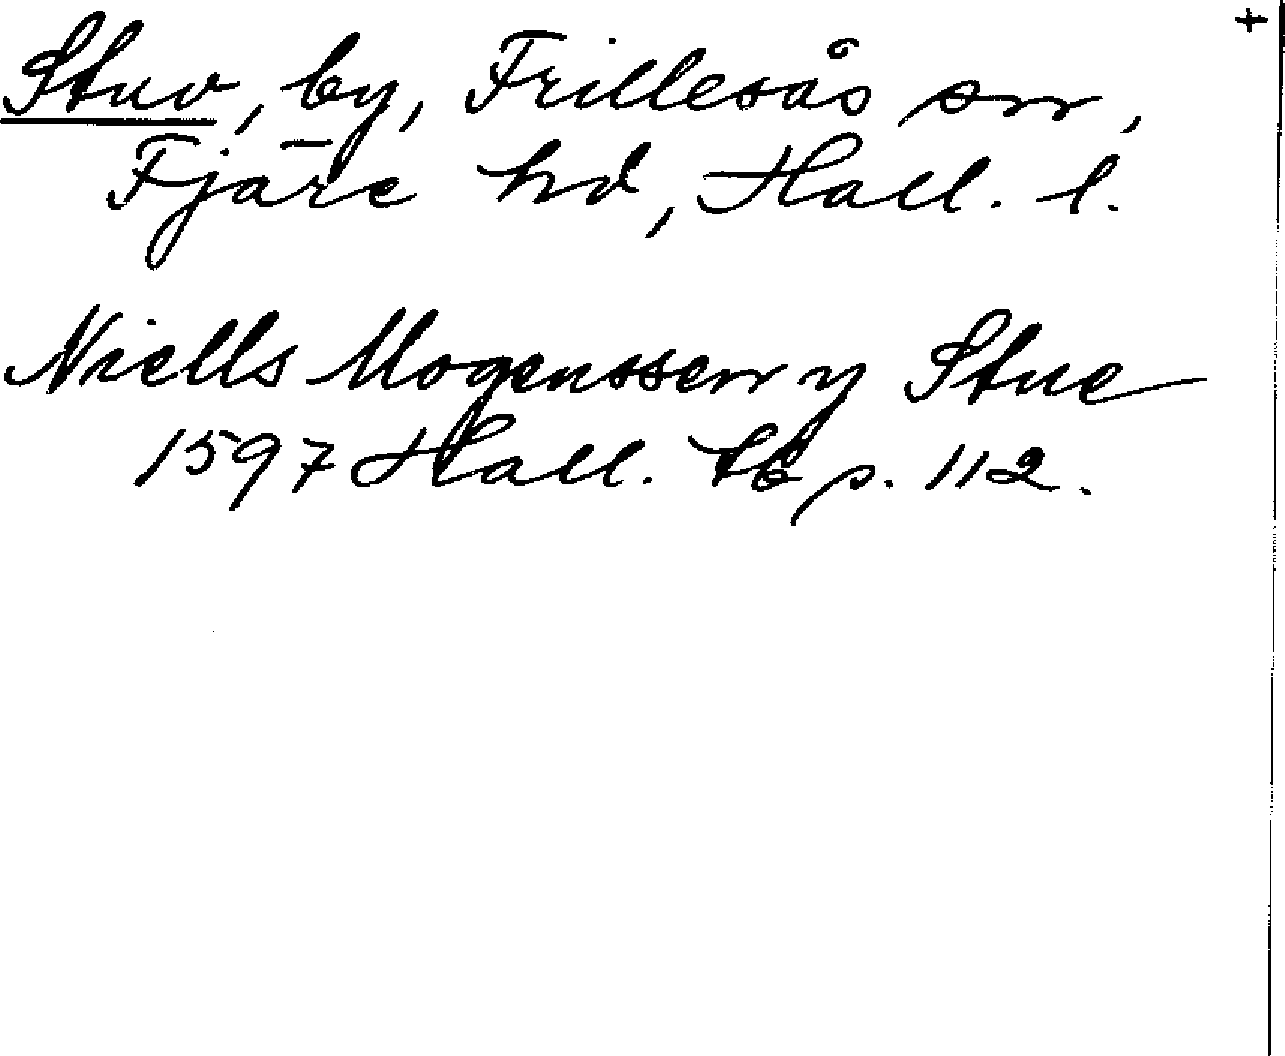 +
Stuv, by, Frillesås sn,
Fjäre hd, Hall. l.
Niells Mogenssenn y Stue
1597 Hall. tb p. 112.